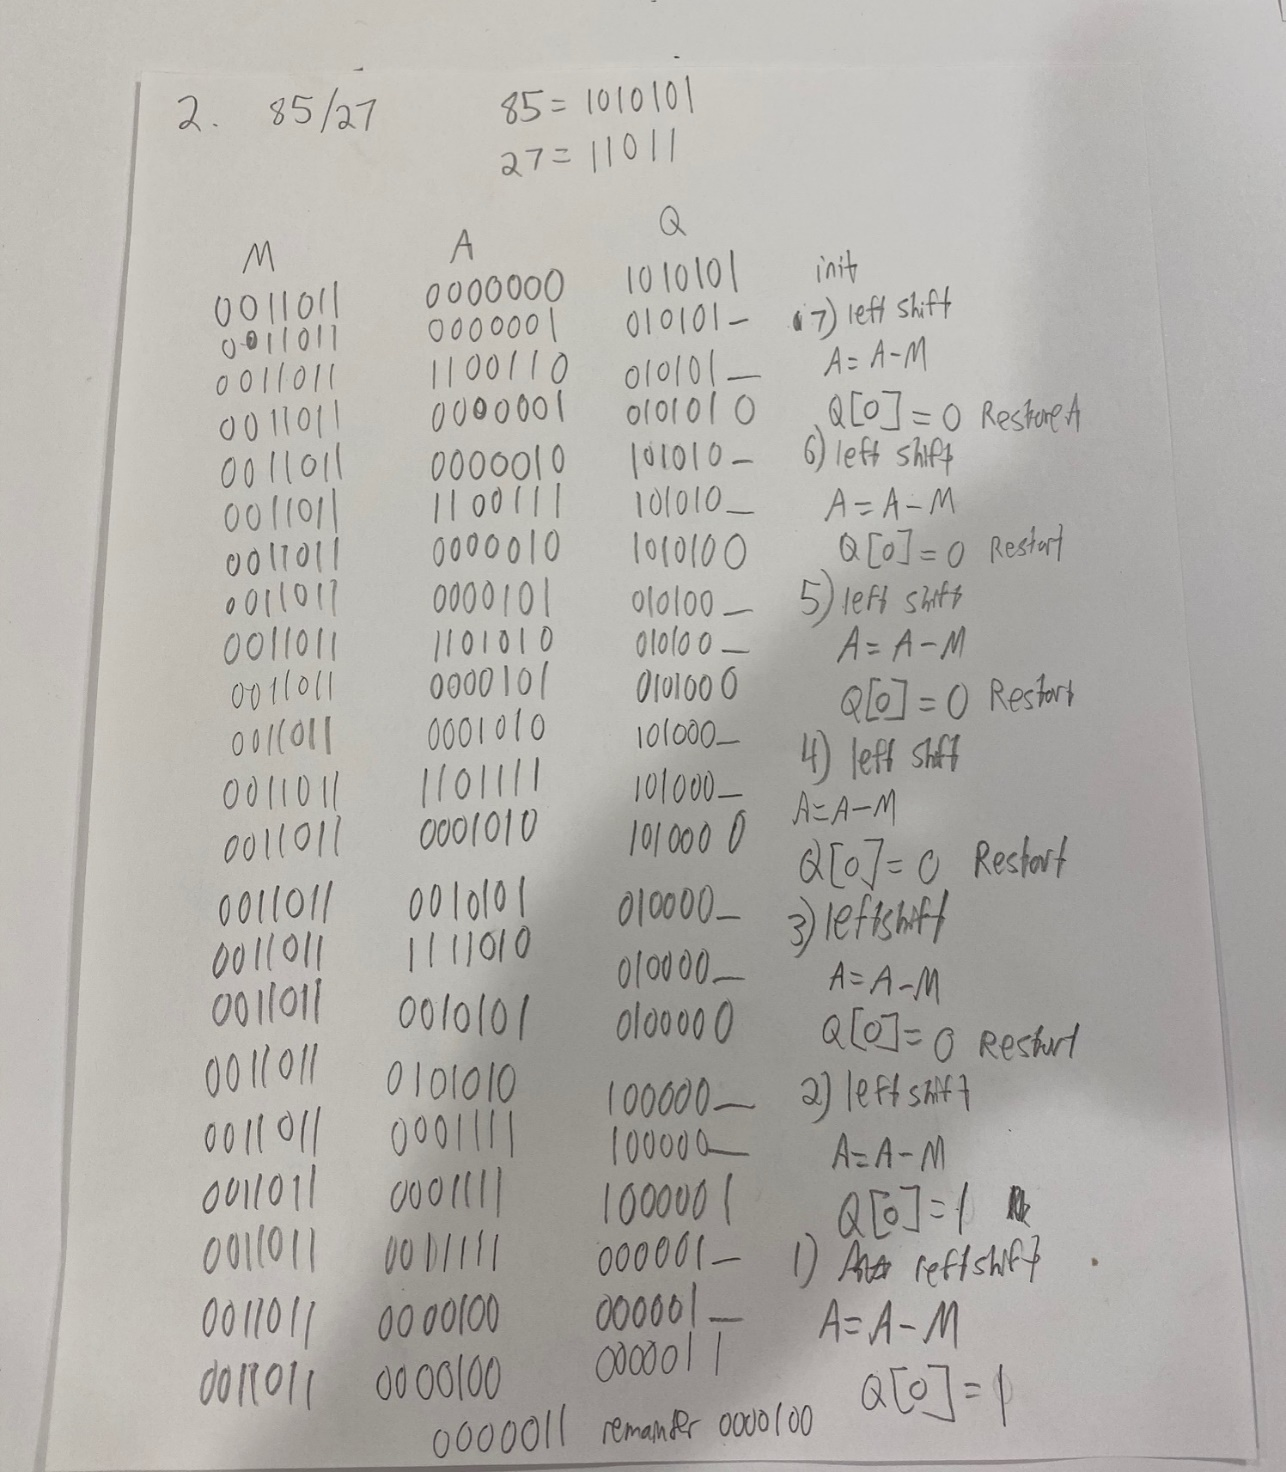 2. 85/27 85 = 1010101
27 = 11011
M A Q
0011011 0000000 1010101 init
0011011 0000001 010101_ 7) left shift
0011011 1100110 010101_ A = A-M
0011011 0000001 0101010 Q[0] = 0 Restore A
0011011 0000010 101010_ 6) left shift
0011011 1100111 101010_ A = A-M
0011011 0000010 1010100 Q[0] = 0 Restart
0011011 0000101 010100_ 5) left shift
0011011 1101010 010100_ A = A-M
0011011 0000101 0101000 Q[0] = 0 Restart
0011011 0001010 101000_ 4) left shift
0011011 1101111 101000_ A=A-M
0011011 0001010 1010000 Q[0] = 0 Restart
0011011 0010101 010000_ 3) leftshift
0011011 1111010 010000_ A = A-M
0011011 0010101 0100000 Q[0] = 0 Restart
0011011 0101010 100000_ 2) left shift
0011011 0001111 100000_ A=A-M
0011011 0001111 1000001 Q[0] = 1
0011011 0011111 000001_ 1) left shift
0011011 0000100 000001_ A=A-M
0011011 0000100 0000011 Q[0] = 1
0000011 remainder 0000100